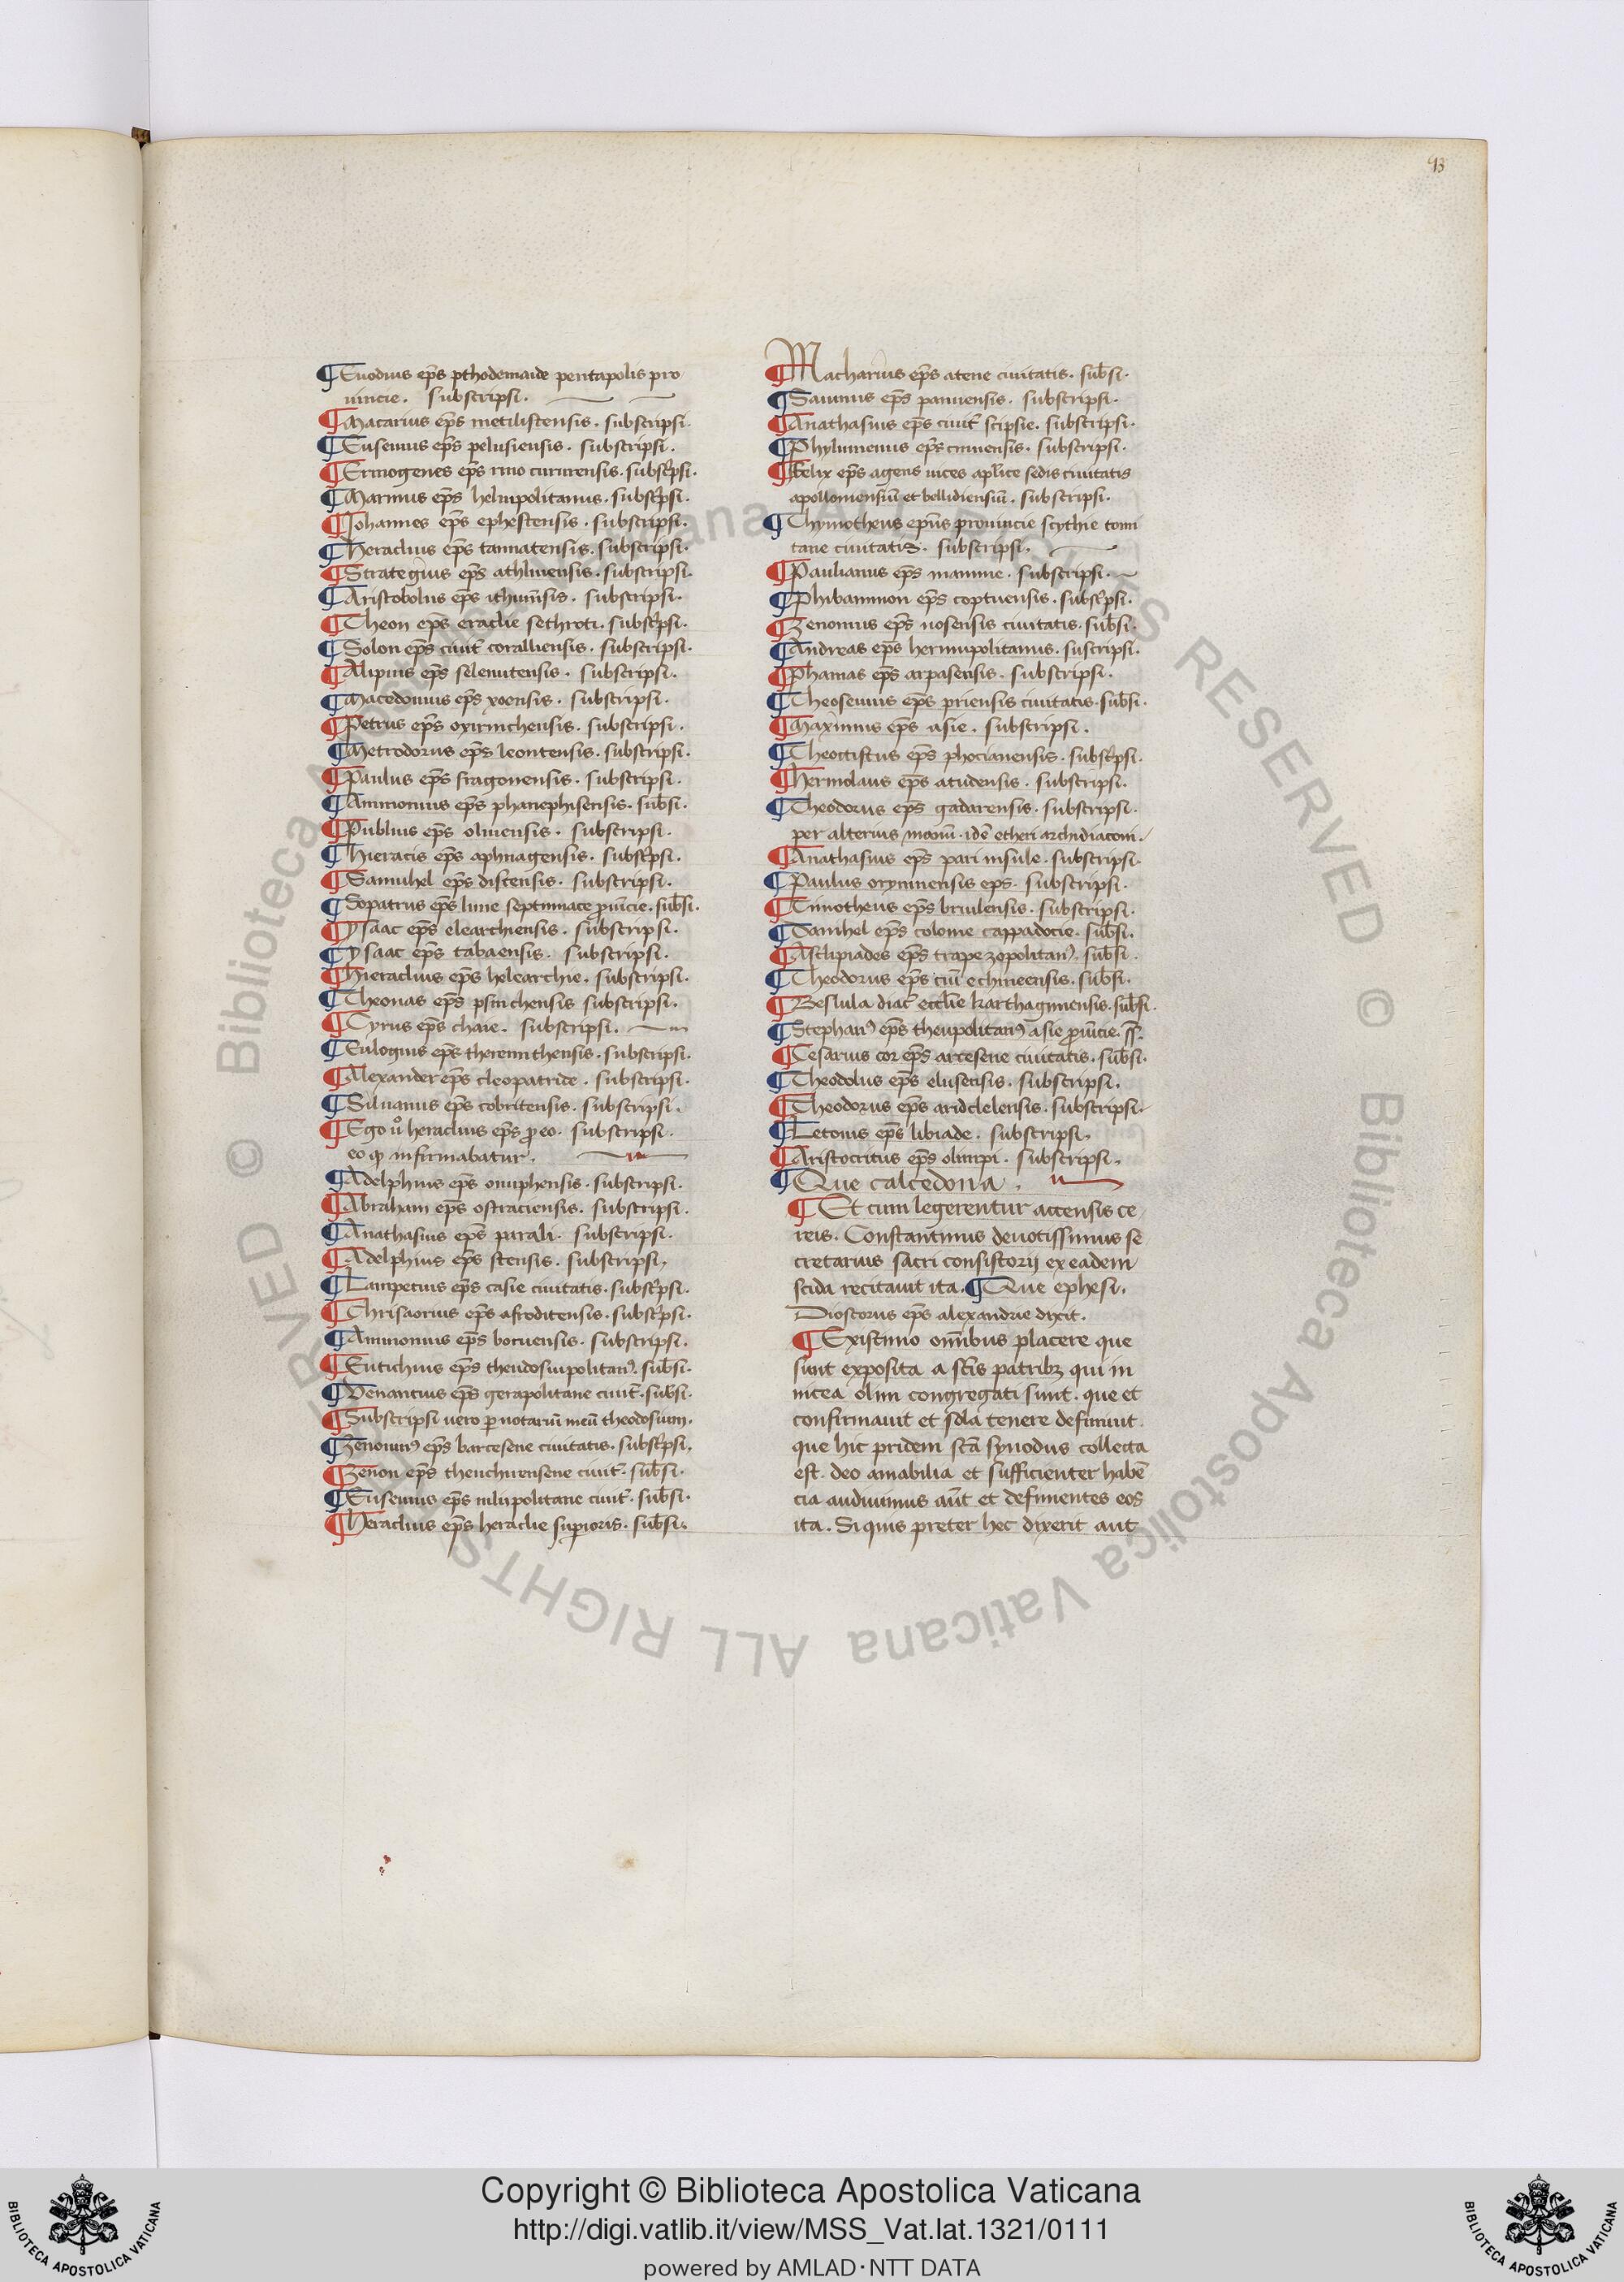 93
¶ Euodius ep̄s pthodemaide pentapolis pro
uincie. subscripsi.
¶ Macarius ep̄s metilistensis. subscripsi.
¶ Euseuius ep̄s pelusiensis. subscripsi.
¶ Ermogenes ep̄s rino cururensis. subsc͛psi.
¶ Marinus ep̄s heliupolitanus. subsc͛psi.
¶ Iohannes ep̄s ephestensis. subscripsi.
¶ heraclius ep̄s tannatensis. subscripsi.
¶ Strategius ep̄s athliuensis. subscripsi.
¶ Aristobolus ep̄s ithuin̄sis. subscripsi.
¶ Theon ep̄s eraclie sethroti. subsc͛psi.
¶ Solon ep̄s ciuit̄ coralliensis. subscripsi.
¶ Alipius ep̄s seleuutensis. subscripsi.
¶ Macedonius ep̄s xoensis. subscripsi.
¶ Petrus ep̄s oxirinchensis. subscripsi.
¶ Metrodorus ep̄s leontensis. subscripsi.
¶ Paulus ep̄s fragonensis. subscripsi.
¶ Ammonius ep̄s phanephisensis. sub̄si.
¶ Publius ep̄s oluiensis. subscripsi.
¶ hieracis ep̄s aphnagensis. subsc͛psi.
¶ Samuhel ep̄s distensis. subscripsi.
¶ Sopatrus ep̄s lime septimiace ꝓuīcie. sub̄si.
¶ Ysaac ep̄s elearchiensis. subscripsi.
¶ Ysaac ep̄s tabaensis. subscripsi.
¶ hieraclius ep̄s helearchie. subscripsi.
¶ Theonas ep̄s psinchensis subscripsi.
¶ Cyrus ep̄s chaie. subscripsi.
¶ Eulogius ep̄s therenithensis. subscripsi.
¶ Alexander ep̄s cleopatride. subscripsi.
¶ Siluanus ep̄s cobritensis. subscripsi.
¶ Ego uͦ heraclius ep̄s ꝓ eo. subscripsi.
eo ꝙ infirmabatur.
¶ Adelphius ep̄s onuphensis. subscripsi.
¶ Abraham ep̄s ostraciensis. subscripsi.
¶ Anathasius ep̄s parali. subscripsi.
¶ Adelphius ep̄s stensis. subscripsi.
¶ Lampetius ep̄s casie ciuitatis. subsc͛psi.
¶ Chrisaorius ep̄s afroditensis. subsc͛psi.
¶ Ammonius ep̄s boruensis. subscripsi.
¶ Eutichius ep̄s theudosiupolitanꝰ. sub̄si.
¶ Venantius ep̄s gerapolitane ciuit̄. sub̄si.
¶ Subscripsi uero ꝑ notariū meū theodosium.
¶ Zenoiusꝰ ep̄s barcesene ciuitatis. subsc͛psi.
¶ Zenon ep̄s theuchirensene ciuit̄. sub̄si.
¶ Euseuius ep̄s nilupolitane ciuit̄. sub̄si.
¶ Heraclius ep̄s heraclie suꝑioris. sub̄si.
¶ Macharius ep̄s atene ciuitatis. sub̄si.
¶ Sauinus ep̄s panuensis. subscripsi.
¶ Anathasius ep̄s ciuit̄ scipsie. subscripsi.
¶ Phylumenus ep̄s cinnensis. subscripsi.
¶ Felix ep̄s agens uices apl̄ice sedis ciuitatis
apolloniensiū et bellidiensiū. subscripsi.
¶ Thymotheus epūs prouincie scythie tomi
tane ciuitatis. subscripsi.
¶ Paulianus ep̄s maiume. subscripsi.
¶ Phibammon ep̄s coptuensis. subsc͛psi.
¶ Zenonius ep̄s nosensis ciuitatis. sub̄si.
¶ Andreas ep̄s hermupolitanus. suscripsi.
¶ Phamas ep̄s arpasensis. subscripsi.
¶ Theoseuius ep̄s priensis ciuitatis. sub̄si.
¶ Maximus ep̄s asie. subscripsi.
¶ Theoctistus ep̄s phocianensis. subsc͛psi.
¶ hermolaus ep̄s atudensis. subscripsi.
¶ Theodorus ep̄s gadarensis. subscripsi.
per alterius manū. idē etheri archidiaconi.
¶ Anathasius ep̄s pari insule. subscripsi.
¶ Paulus orymnensis eps. subscripsi.
¶ Timotheus ep̄s briulensis. subscripsi.
¶ Damhel ep̄s colome cappadocie. sub̄si.
¶ Asclipiades ep̄s trapezopolitanꝰ. sub̄si.
¶ Theodorus ep̄s ciū echineensis. sub̄si.
¶ Besulula diac̄ eccl̄ie karthaginensis. sub̄si.
¶ Stephanꝰ ep̄s theupolitanꝰ asie ꝓuīcie. ss̄.
¶ Cesarius cor ep̄s arcesene ciuitatis. sub̄si.
¶ Theodolus ep̄s elusensis. subscripsi.
¶ Theodorus ep̄s aridclelensis. subscripsi.
¶ Letoius ep̄s libiade. subscripsi.
¶ Aristocritus ep̄s olimpi. subscripsi.
¶ Que calcedona.
¶ Et cum legerentur accensis ce
reis. Constantinus deuotissimus se
cretarius sacri consistorij ex eadem
scida recitauit ita. ¶ Que ephesi.
Dioscorus ep̄s alexandrie dixit.
¶ Existimo om̄ibus placere que
sunt exposita a sc̄is patribꝫ qui in
nicea olim congregati sunt. que et
confirmauit et sola tenere definiuit.
que hic pridem sc̄a synodus collecta
est. deo amabilia et sufficienter habē
cia audiuimus aūt et definientes eos
ita. Si quis preter hec dixerit aut
Copyright © Biblioteca Apostolica Vaticana
http://digi.vatlib.it/view/MSS_Vat.lat.1321/0111
powered by AMLAD·NTT DATA
BIBLIOTECA APOSTOLICA VATICANA
BIBLIOTECA APOSTOLICA VATICANA